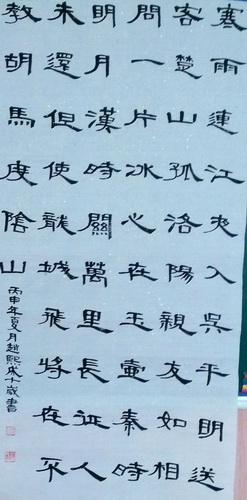 寒雨連江夜入吳平明送
客楚山孤洛陽親友如相
問一片冰心在玉壺秦時
明月漢時關萬里長征人
未還但使龍城飛將在不
教胡馬度陰山
丙申年夏月趙熙成十歲書